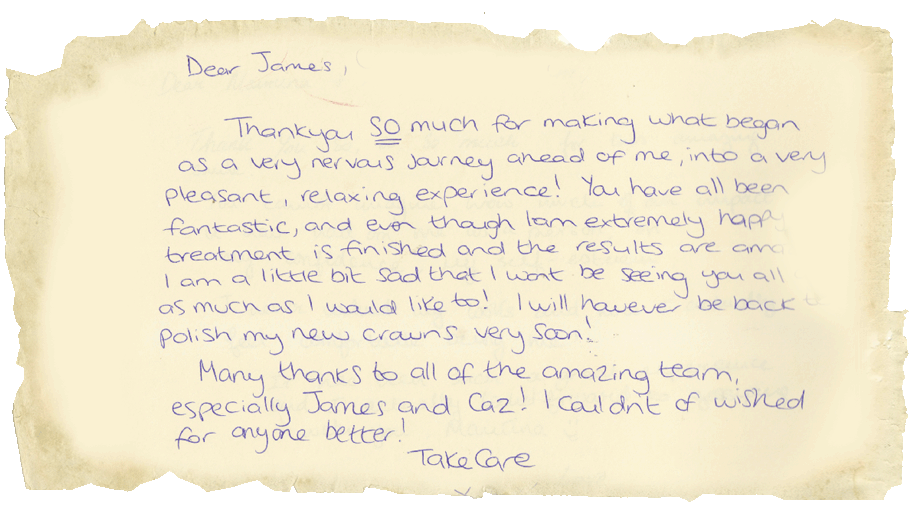 Dear James,
Thankyou SO much for making what began
as a very nervous journey ahead of me, into a very
pleasant, relaxing experience! You have all been
fantastic, and even though I am extremely happy
treatment is finished and the results are
I am a little bit sad that I wont be seeing you all
as much as I would like to! I will however be back
polish my new crowns very soon!
Many thanks to all of the amazing team,
especially James and Caz! I couldn't of wished
for anyone better!
Take Care